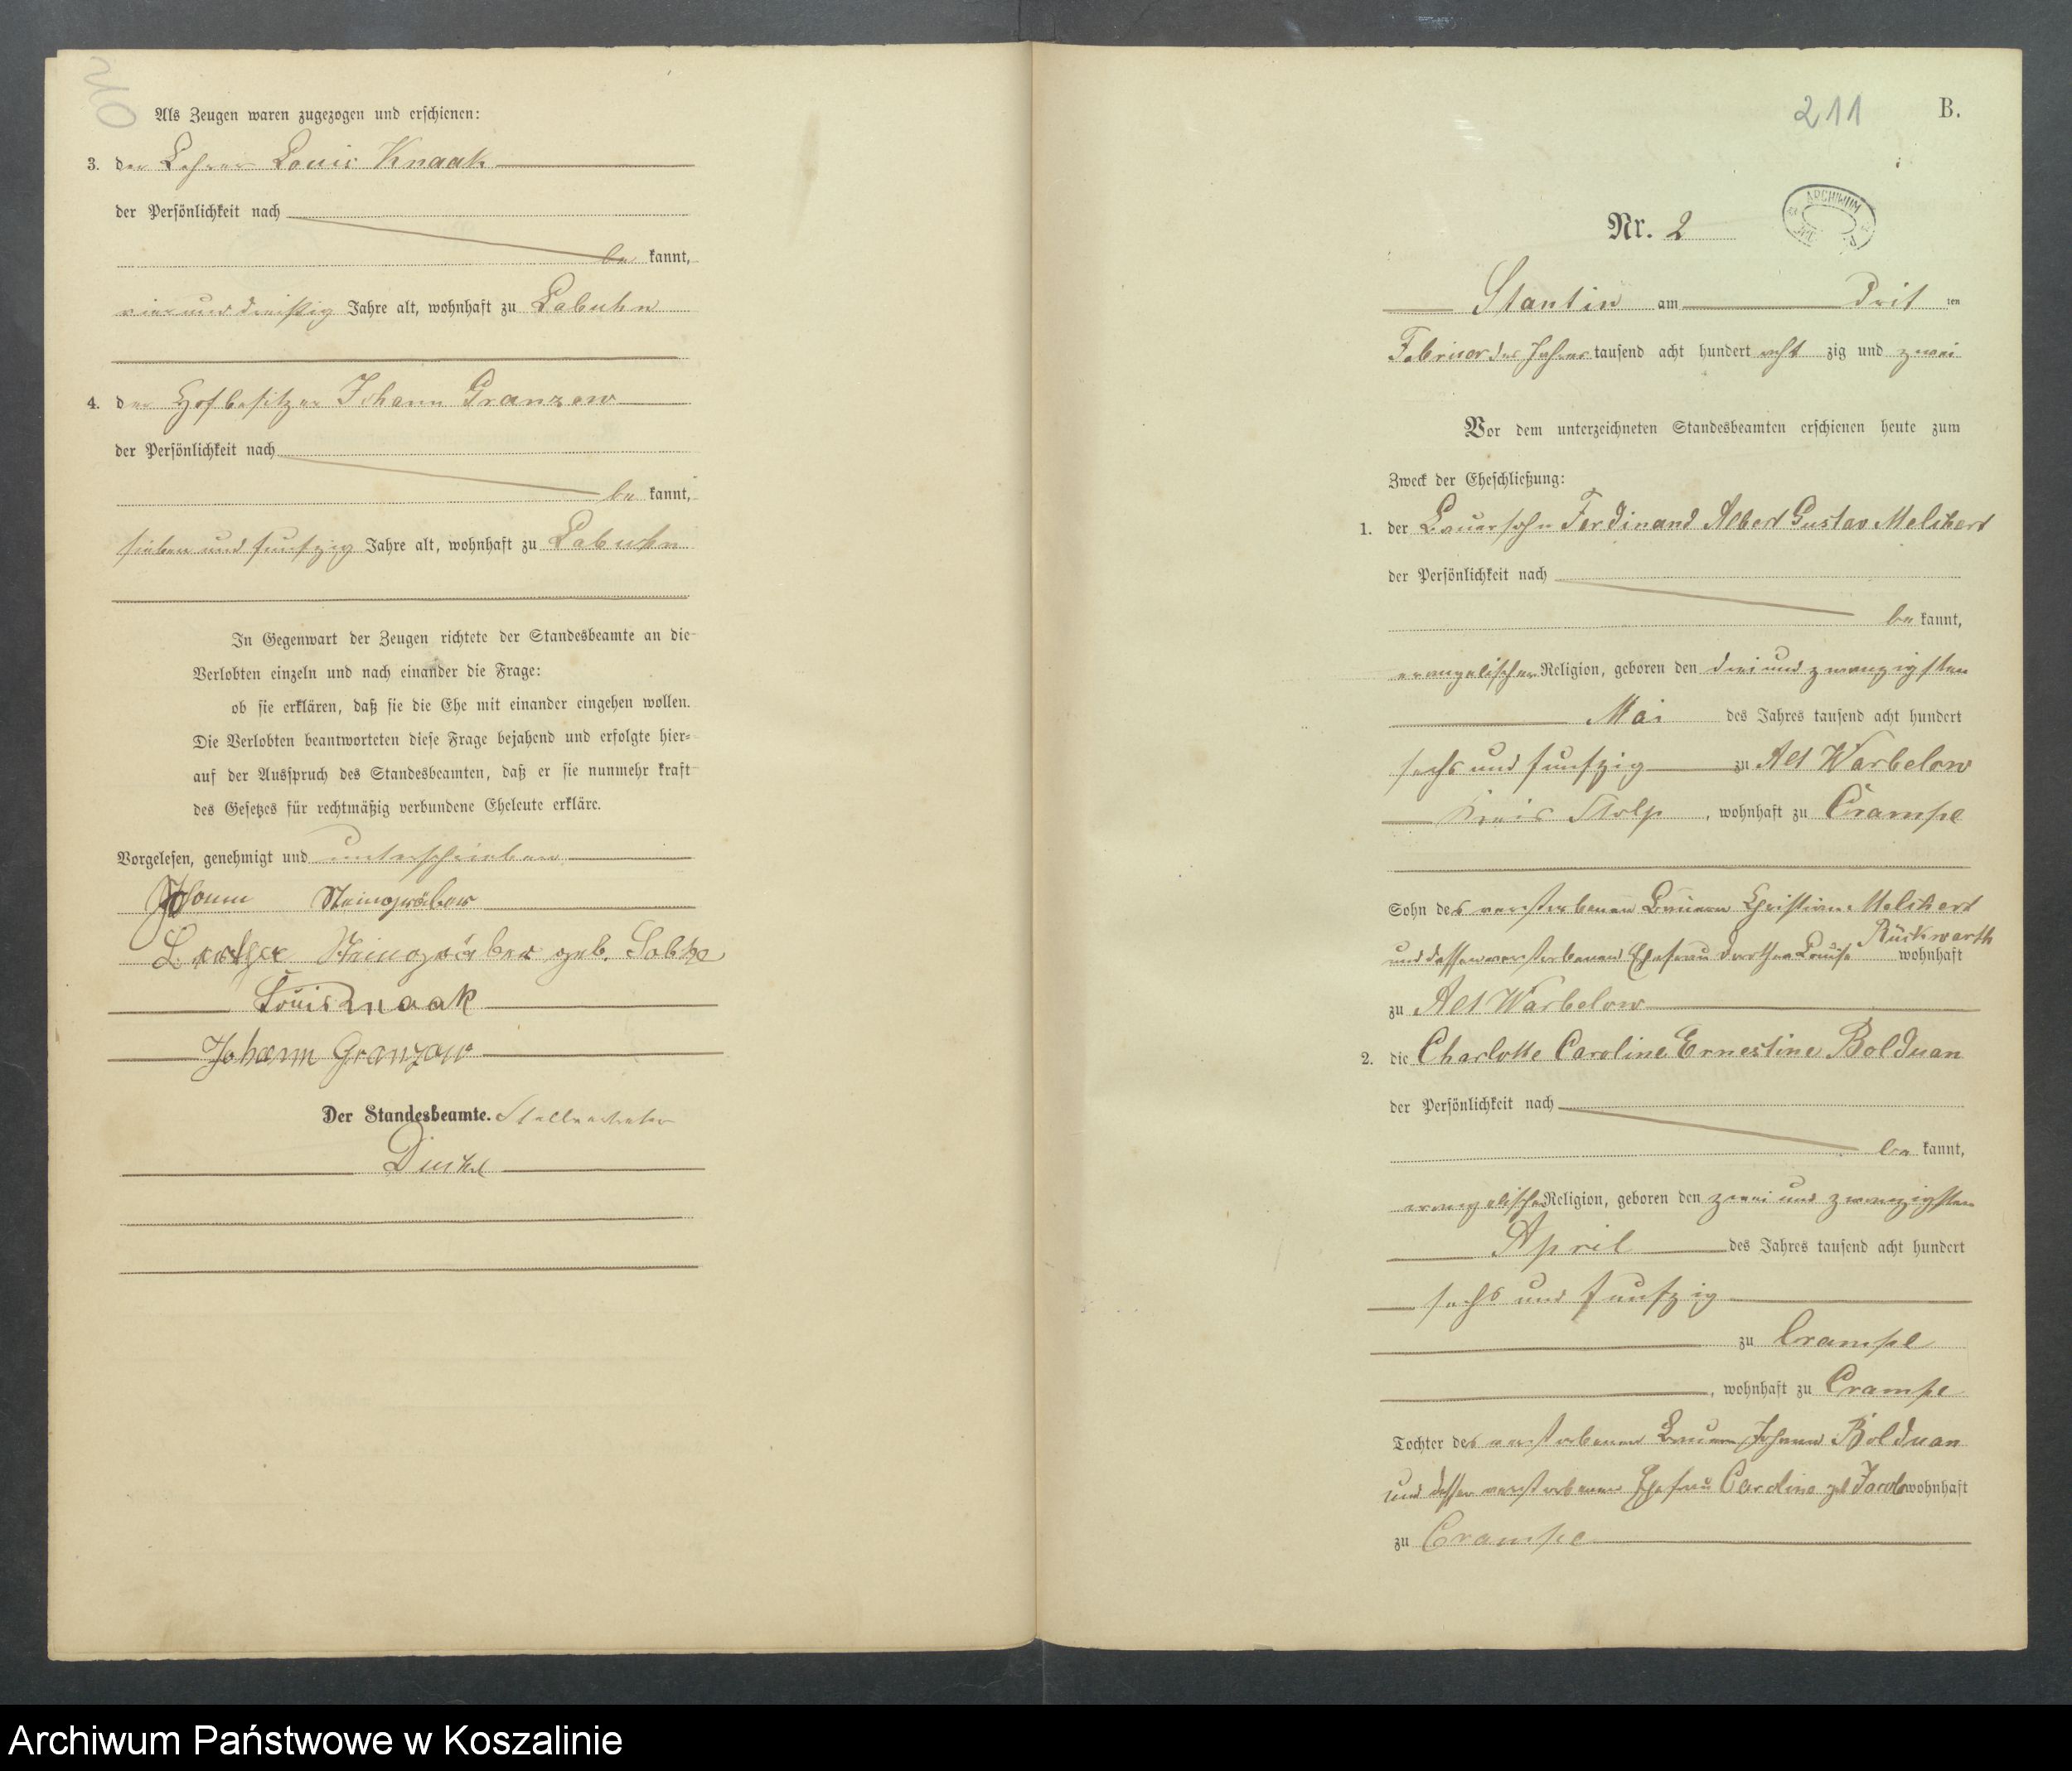 210
Als Zeugen waren zugezogen und erschienen:
3. der Lehrer Louis Knaak
der Persönlichkeit nach
be kannt,
vier und dreißig Jahre alt, wohnhaft zu Labuhn
4. der Hofbesitzer Johann Granzow
der Persönlichkeit nach
be kannt,
sieben und funfzig Jahre alt, wohnhaft zu Labuhn
In Gegenwart der Zeugen richtete der Standesbeamte an die
Verlobten einzeln und nach einander die Frage:
ob sie erklären, daß sie die Ehe mit einander eingehen wollen.
Die Verlobten beantworteten diese Frage bejahend und erfolgte hier-
auf der Ausspruch des Standesbeamten, daß er sie nunmehr kraft
des Gesetzes für rechtmäßig verbundene Eheleute erkläre.
Vorgelesen, genehmigt und unterschrieben
Johann Steingräber
Steingräber geb.
Louis Knaak
Johann Granzow
Der Standesbeamte. Stellvertreter
211 B.
Nr. 2
ARCHIWUM
Stantin am Drit ten
Februar des Jahres tausend acht hundert acht zig und zwei
Vor dem unterzeichneten Standesbeamten erschienen heute zum
Zweck der Eheschließung:
1. der Bauersohn Ferdinand Albert Gustav Melchert
der Persönlichkeit nach
be kannt,
evangelischer Religion, geboren den drei und zwanzigsten
Mai des Jahres tausend acht hundert
sechs und funfzig zu Alt Warbelow
Kreis Stolp, wohnhaft zu Crampe
Sohn des verstorbenen Bauern Christian Melchert
und dessen verstorbenen Ehefrau Dorothea Louise Rückwarth wohnhaft
zu Alt Warbelow
2. die Charlotte Caroline Ernestine Bolduan
der Persönlichkeit nach
be kannt,
evangelischer Religion, geboren den zwei und zwanzigsten
April des Jahres tausend acht hundert
sechs und funfzig
zu Crampe
, wohnhaft zu Crampe
Tochter des verstorbenen Bauern Johann Bolduan
und dessen verstorbenen Ehefrau Caroline geb Jacob wohnhaft
zu Crampe
Archiwum Państwowe w Koszalinie